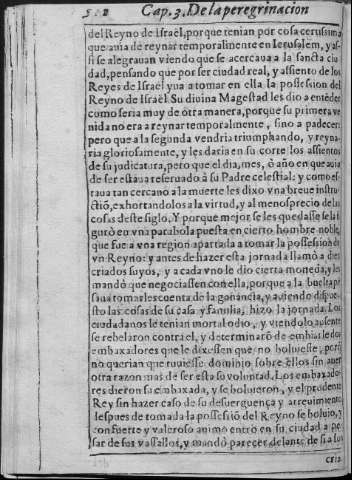 Cap. 3. De la peregrinacion
del Reyno de Israel, porque tenian por cosa certissima
que auia de reynar temporalmente en Ierusalem, y as-
si se alegrauan viendo que se acercaua a la sancta ciu
dad, pensando que por ser ciudad real, y assiento de los
Reyes de Israel yua a tomar en ella la possession del
Reyno de Israel. Su diuina Magestad les dio a enteder
como seria muy de otra manera, porque su primera ve
nida no era a reynar temporalmente, sino a padecer:
pero que a la segunda vendria triumphando, y reyna-
ria gloriosamente, y les daria en su corte los assientos
de su judicatura, pero que el dia, mes, ò año en que auia
de ser estaua reseruado à su Padre celestial: y como es-
taua tan cercano a la muerte les dixo vna breue instru-
ctiō, exhortandolos a la virtud, y al menosprecio de las
cosas deste siglo. Y porque mejor se les quedasse se la fi
guro en vna parabola puesta en cierto hombre noble,
que fue a vna region apartada a tomar la possession de
vn Reyno: y antes de hazer esta jornada llamò a diez
criados suyos, y a cada vno le dio cierta moneda, y les
mandò que negociassen con ella, porque a la buelta pē
saua tomarles cuenta de la ganancia, y auiendo dispue-
sto las cosas de su casa y familia, hizo la jornada. Los
ciudadanos le tenian mortal odio, y viendolo ausente
se rebelaron contra el, y determinarō de embiarle dos
embaxadores que le dixessen que no boluiesse, porq̃
no querian que tuuiesse dominio sobre ellos sin auer
otra razon mas de ser esta su voluntad. Los embaxado-
res dieron su embaxada, y se boluieron, y el prudente
Rey sin hazer caso de su desuerguença y atreuimiento,
despues de tomada la possessiō del Reyno se boluio, y
con fuerte y valeroso animo entrò en su ciudad a pe-
sar de sus vassallos, y mandò parecer delante de si a los
cria